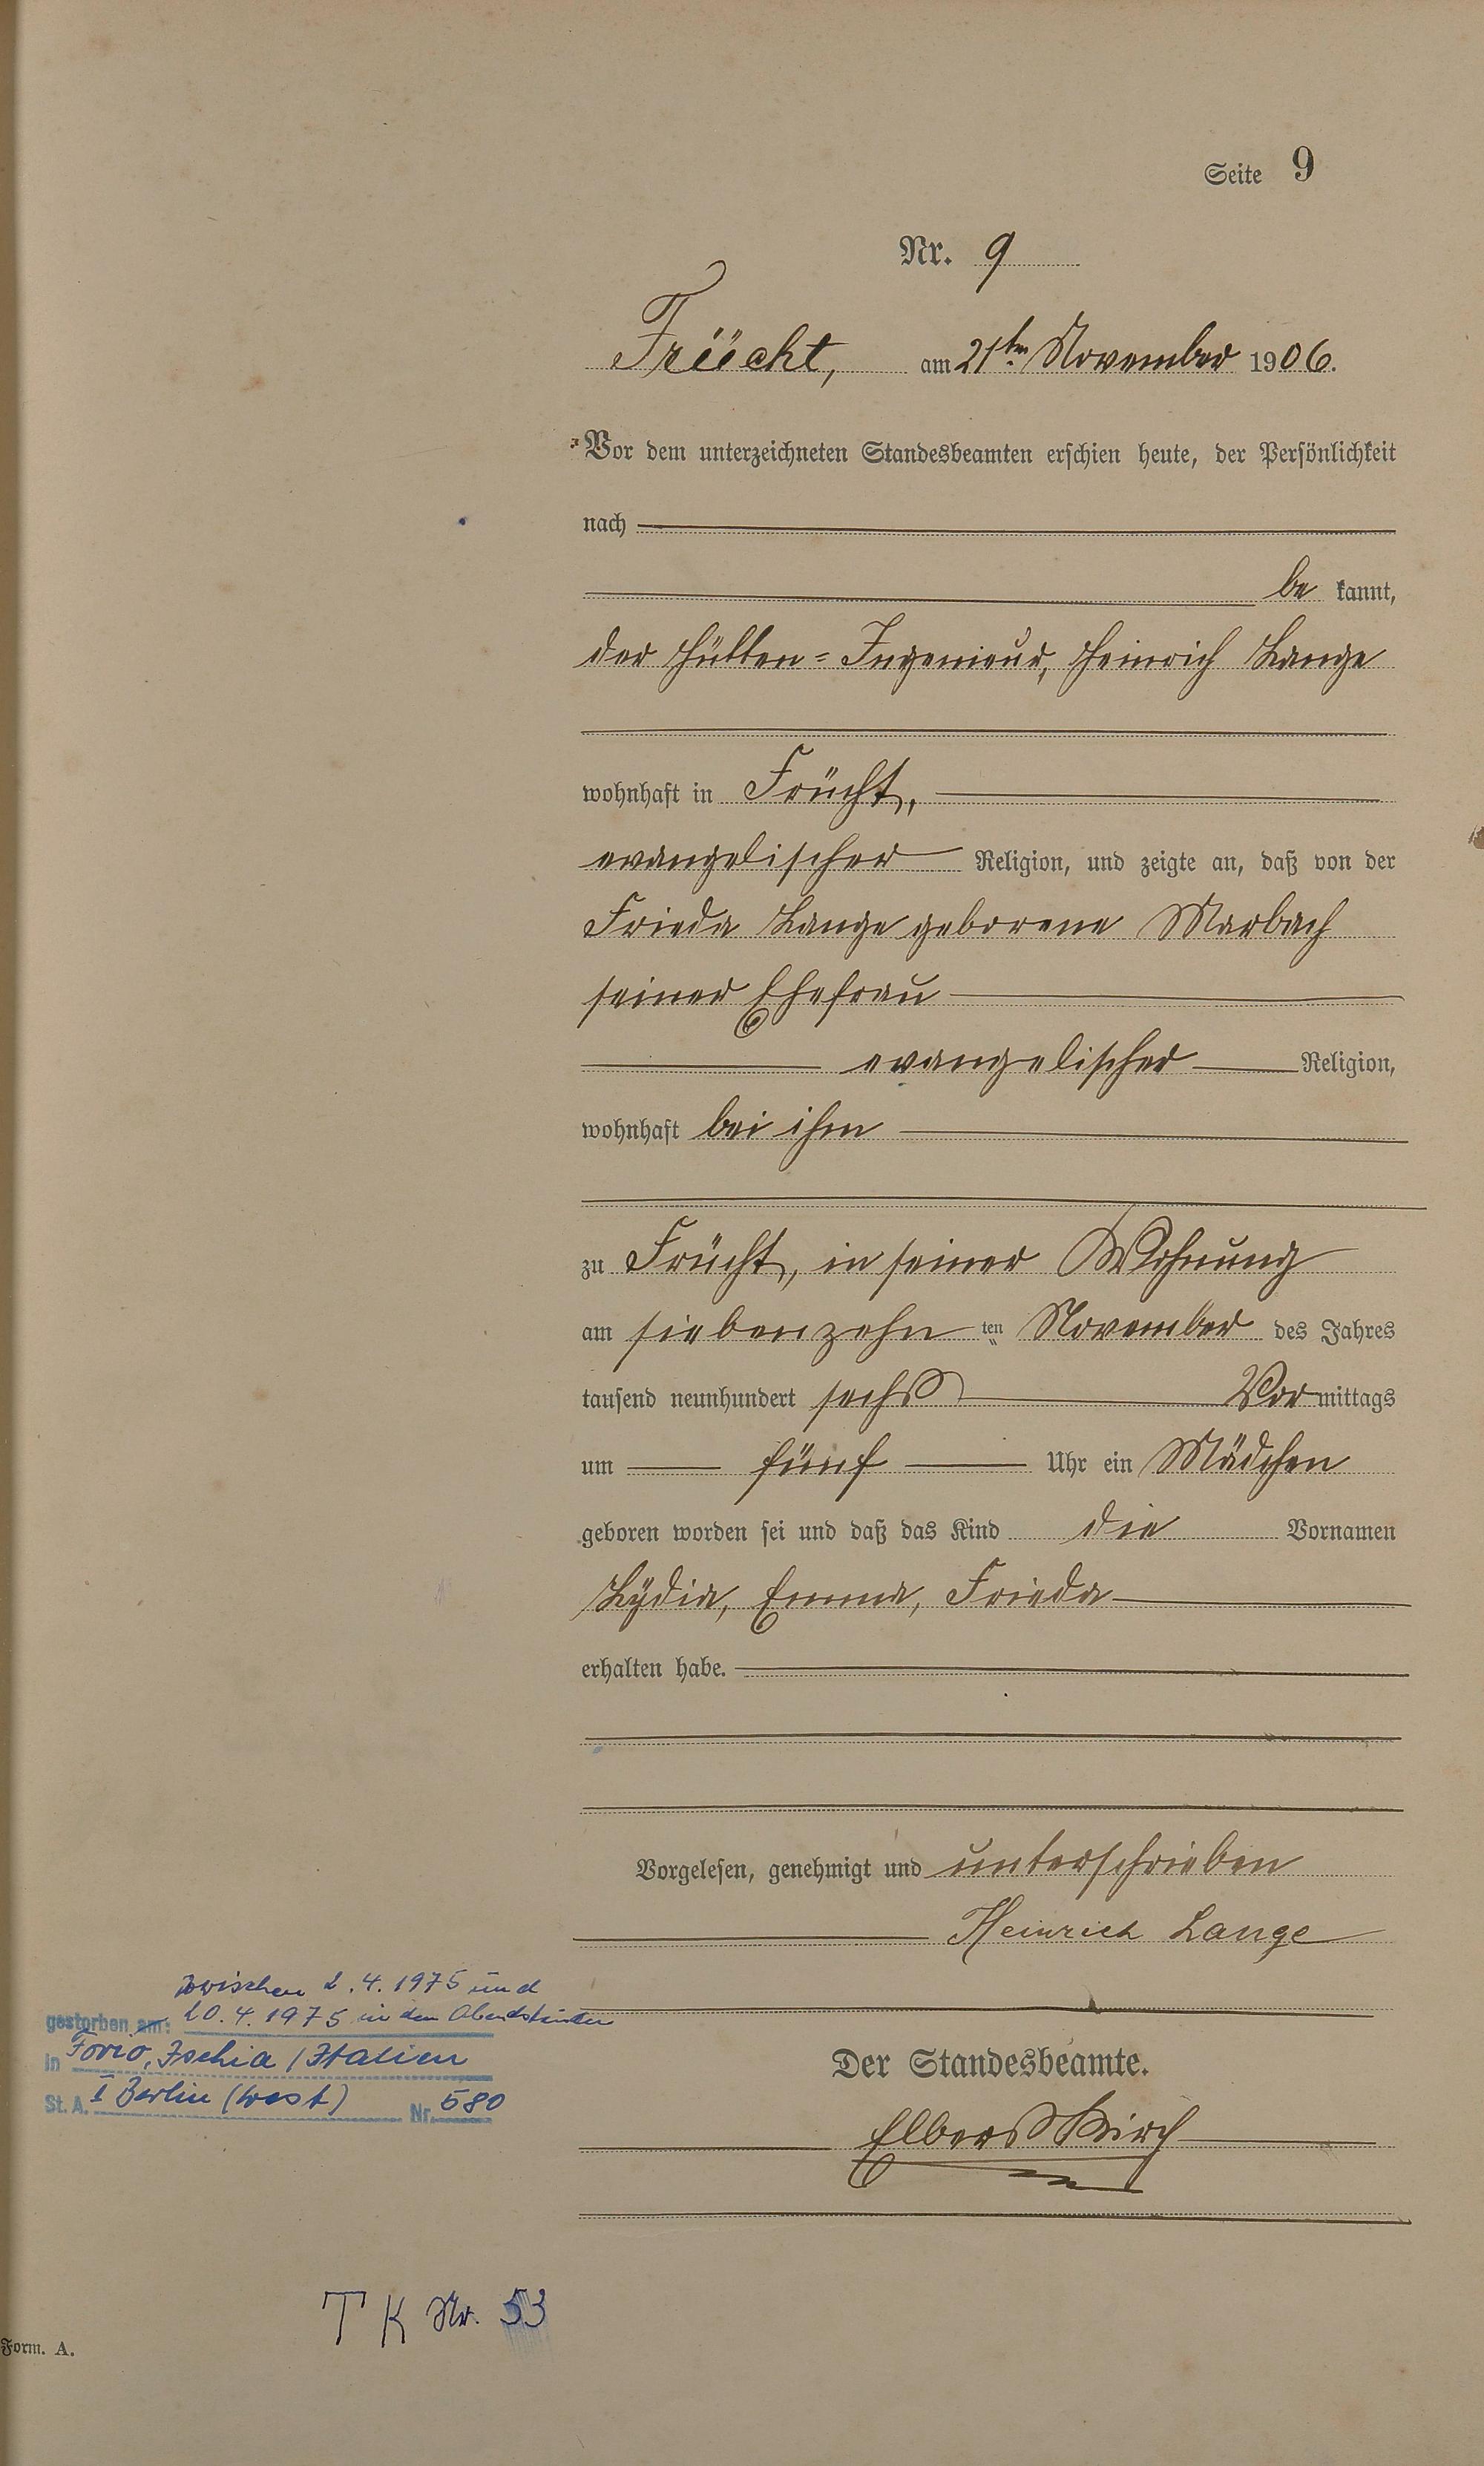 Seite 9
Nr. 9
Frücht, am 21ten November 1906.
Vor dem unterzeichneten Standesbeamten erschien heute, der Persönlichkeit
nach
be kannt,
der Hütten=Ingenieur, Heinrich Lange
wohnhaft in Frücht,
evangelischer Religion, und zeigte an, daß von der
Frieda Lange geborene Marbach
seiner Ehefrau
evangelischer Religion,
wohnhaft bei ihm
zu Frücht, in seiner Wohnung
am siebenzehn ten November des Jahres
tausend neunhundert sechs Vormittags
um fünf Uhr ein Mädchen
geboren worden sei und daß das Kind die Vornamen
Lydia, Emma, Frieda
erhalten habe.
Vorgelesen, genehmigt und unterschrieben
Heinrich Lange
Der Standesbeamte.
Elberskirch
zwischen 2.4.1975 und
gestorben am: 20.4.1975 in den Abendstunden
in Forio, Ischia / Italien
St. A. I Berlin (West) Nr. 580
T K Nr. 53
Form. A.